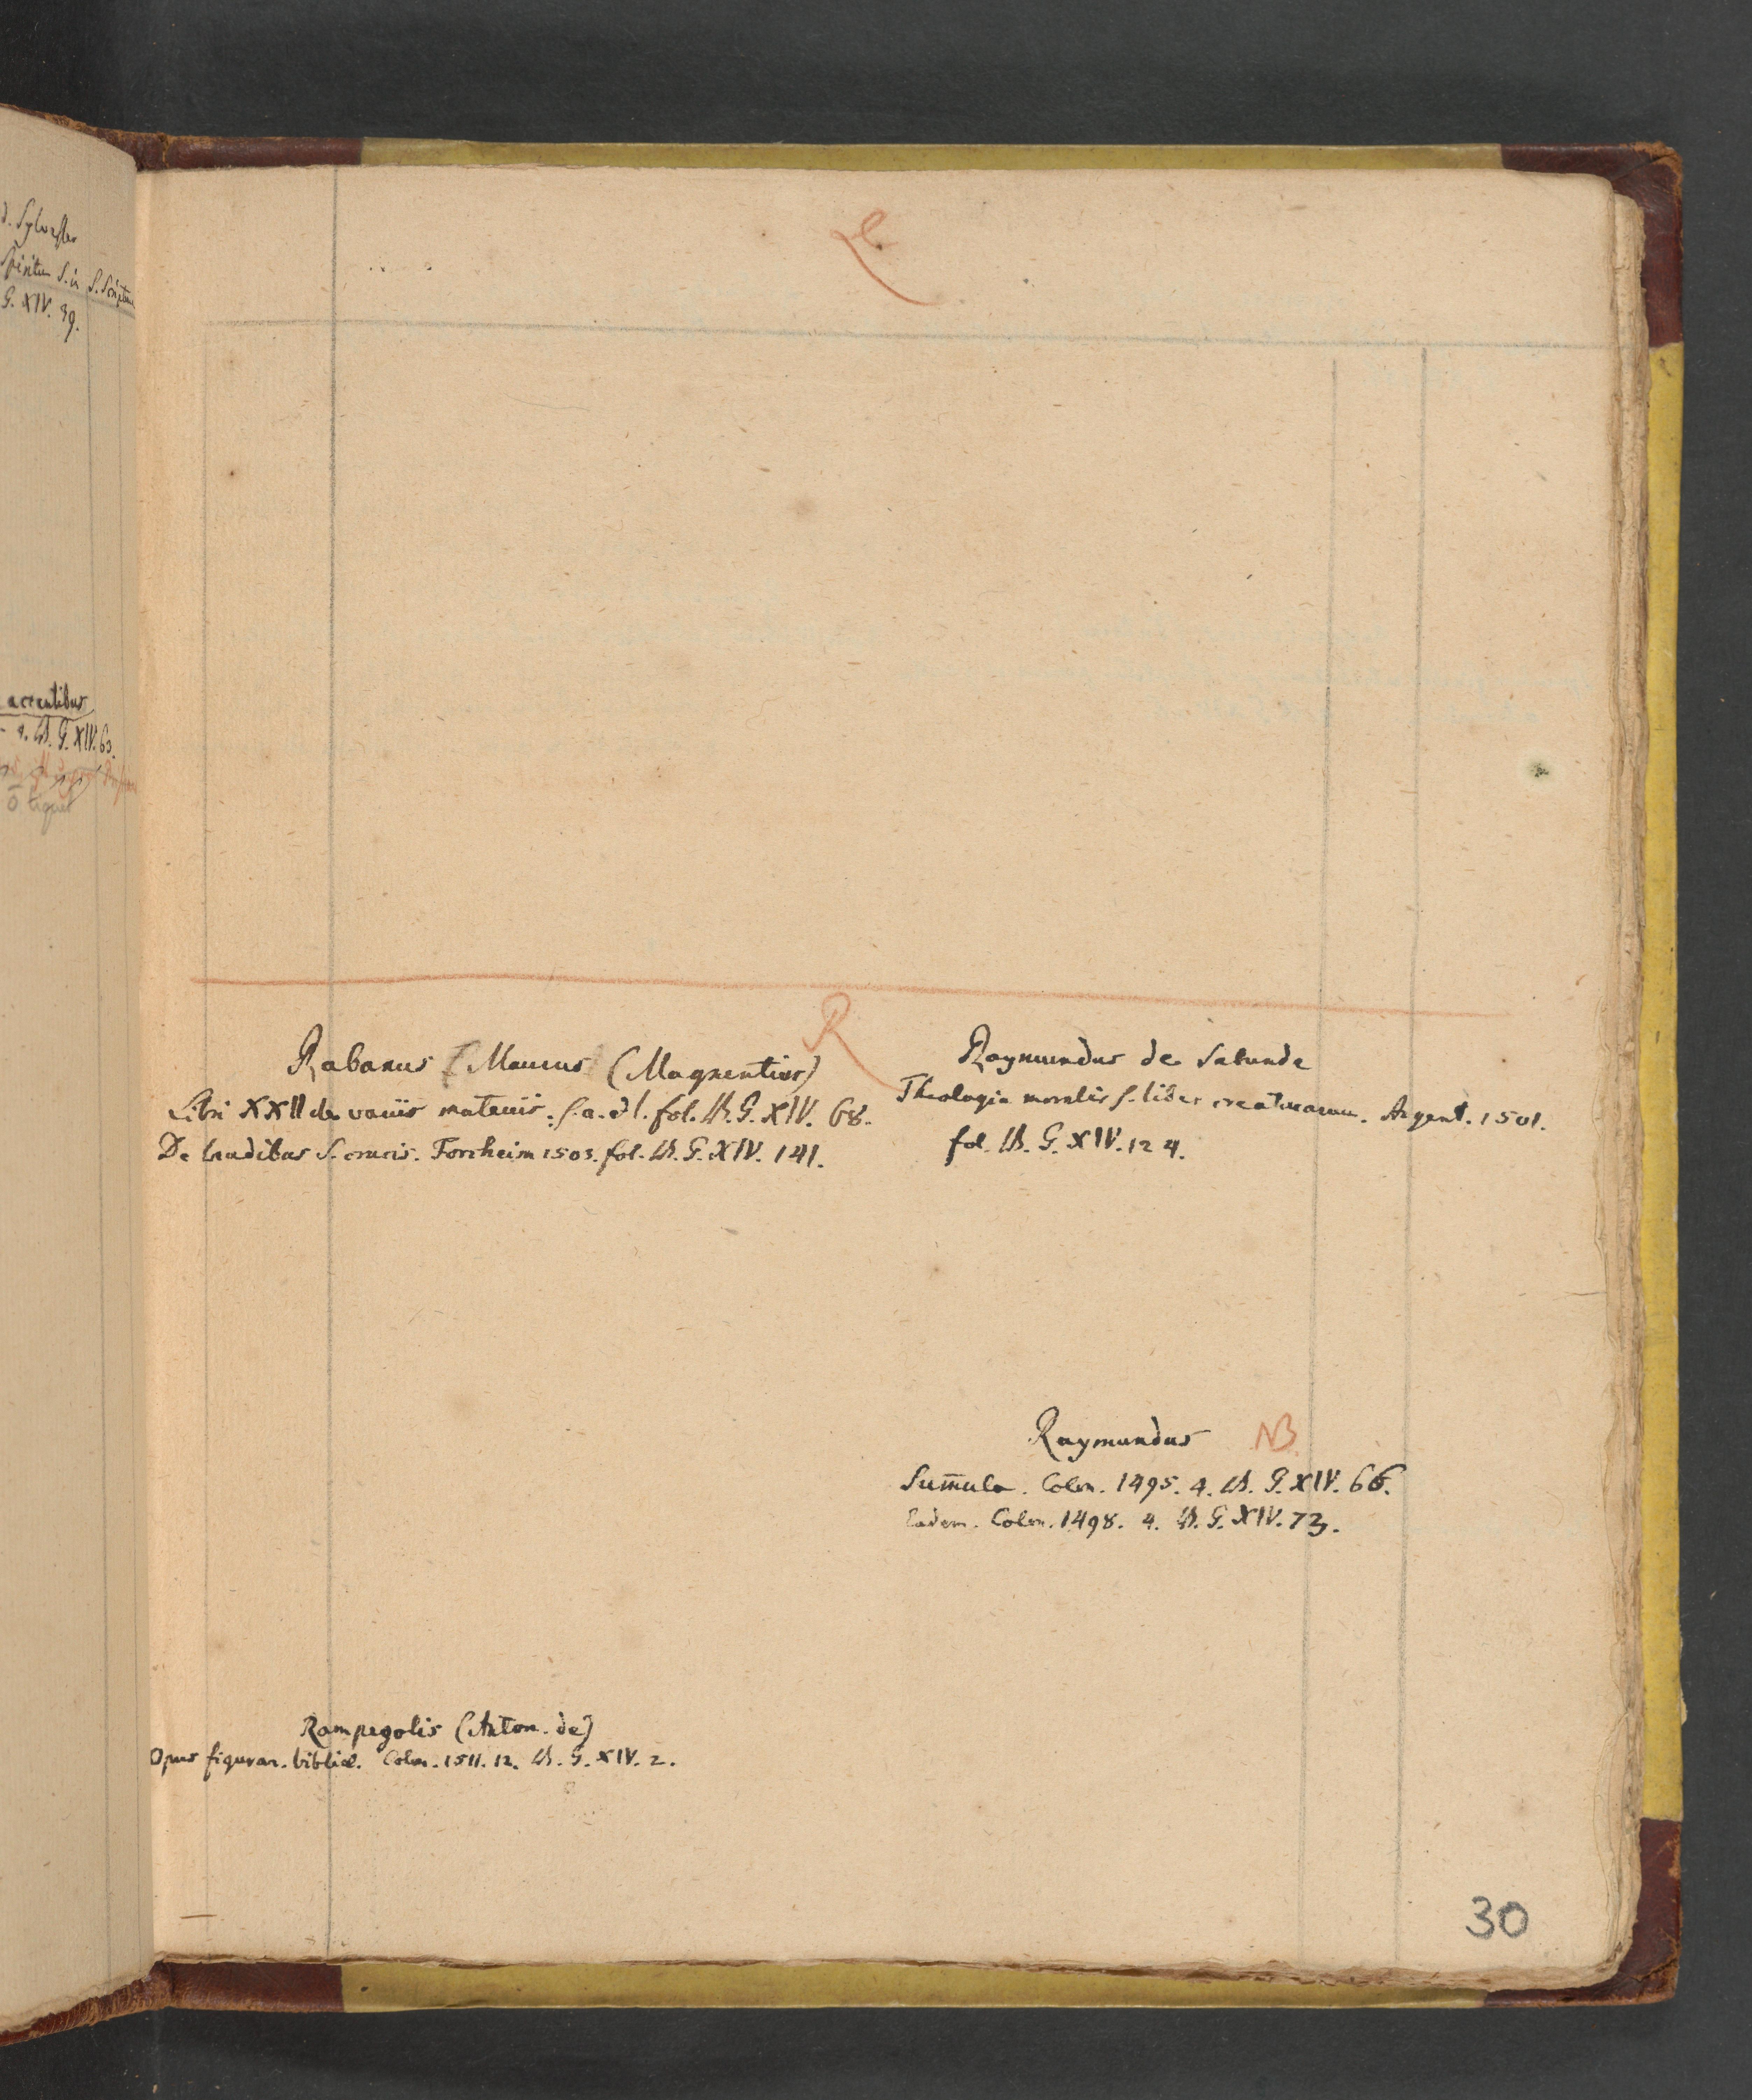 d. Sylvester
Spiritu S. in S. Scriptura
G. XIV. 39.
accentibus
4. Th. G. XIV. 60.
Q
R
Rabanus (Maurus) (Magnentius)
Libri XXII de variis materiis. s. a. & l. fol. Th. G. XIV. 68.
De laudibus S. crucis. Forcheim 1503. fol. Th. G. XIV. 141.
Raymundus de Sabunde
Theologia moralis s. liber creaturarum. Argent. 1501.
fol. Th. G. XIV. 124.
Raymundus NB
Sum̄ula. Colon. 1495. 4. Th. G. XIV. 66.
Eadem. Colon. 1498. 4. Th. G. XIV. 73.
Rampegolis (Anton. de)
Opus figurar. biblic. Colon. 1511. 12. Th. G. XIV. 2.
30